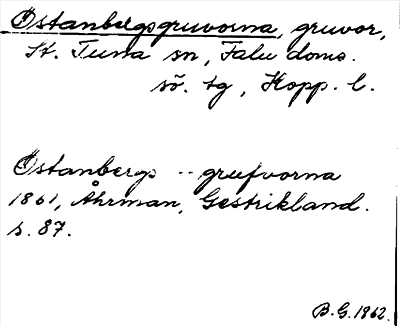 Östanbergsgruvorna, gruvor,
St. Tuna sn, Falu doms.
sö. tg, Kopp. l.
Östanbergs -- grufvorna
1861, Åhrman, Gestrikland.
s. 87.
B.G. 1862.